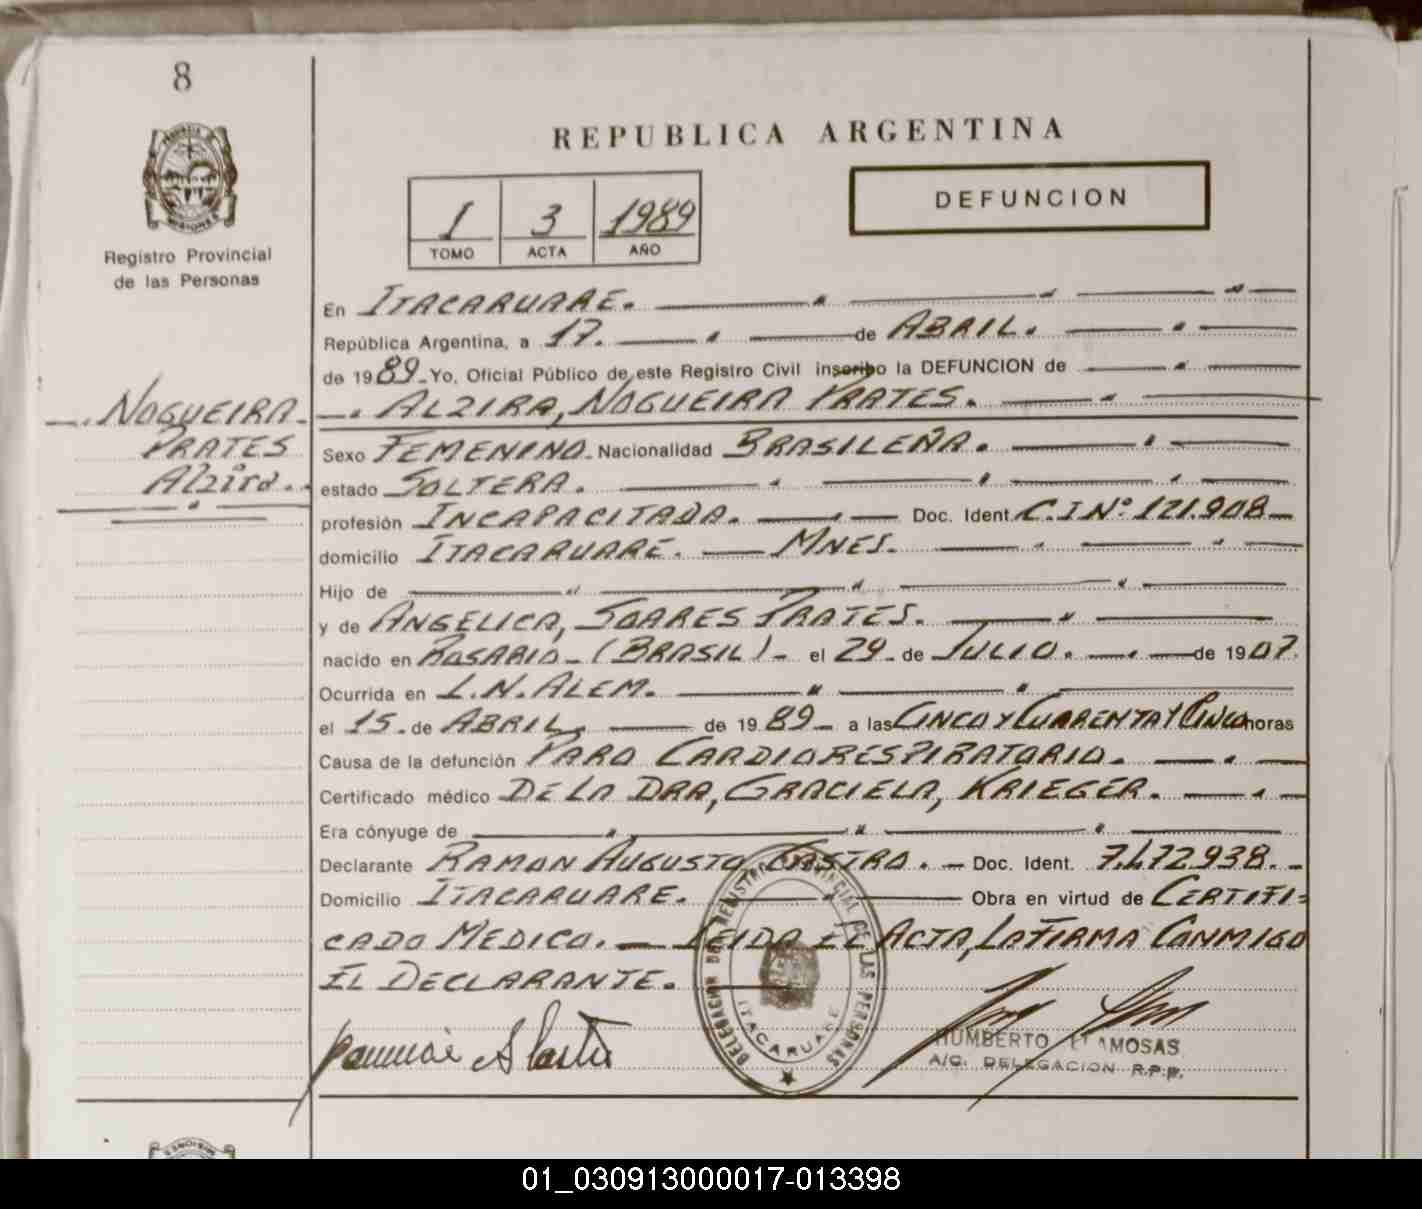 8
Registro Provincial
de las Personas
NOGUEIRA
PRATES
Alzira.
REPUBLICA ARGENTINA
I 3 1989
TOMO ACTA AÑO
DEFUNCION
En ITACARUARE.
República Argentina, a 17. de ABRIL.
de 1989 Yo, Oficial Público de este Registro Civil inscribo la DEFUNCION de
ALZIRA, NOGUEIRA PRATES.
Sexo FEMENINO. Nacionalidad BRASILEÑA.
estado SOLTERA.
profesión INCAPACITADA. Doc. Ident. C.I Nº 121.908
domicilio ITACARUARE. MNES.
Hijo de
y de ANGELICA, SOARES PRATES.
nacido en ROSARIO - (BRASIL) - el 29 - de JULIO. de 1907.
Ocurrida en L.N. ALEM.
el 15 - de ABRIL. de 1989 - a las CINCO Y CUARENTA Y CINCO horas
Causa de la defunción PARO CARDIORESPIRATORIO.
Certificado médico DE LA DRA, GRACIELA, KRIEGER.
Era cónyuge de
Declarante RAMON AUGUSTO, CASTRO. - Doc. Ident. 7.472.938. -
Domicilio ITACARUARE. Obra en virtud de CERTIFI=
CADO MEDICO. - LEIDA EL ACTA, LA FIRMA CONMIGO
EL DECLARANTE.
DELEGACION DEL REGISTRO PROVINCIAL DE LAS PERSONAS
ITACARUARE
HUMBERTO AMOSAS
A/C. DELEGACION R.P.P.
MISIONES
01_030913000017-013398